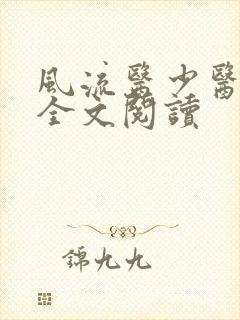 風流醫少醫
全文閱讀
錦九九